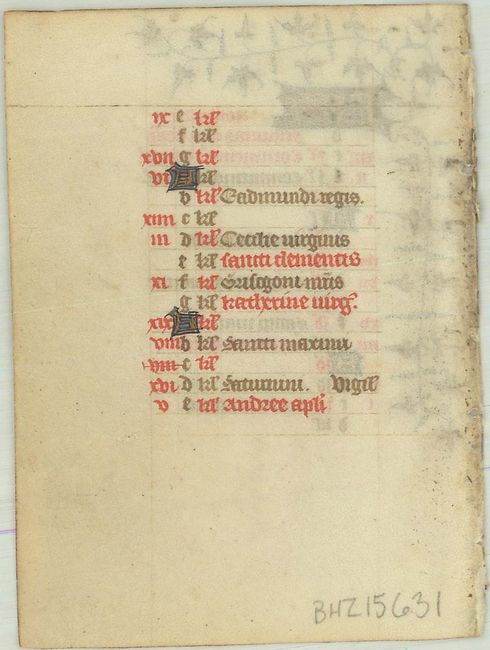 ix e kl
f kl
xvii g kl
vi A kl
b kl Eadmundi regis.
xiiii c kl
iii d kl Cecilie uirginis
e kl sancti clementis
xi f kl Grisogoni mris
g kl katherine uirg.
xix A kl
viii b kl Sancti maximi
viii c kl
xvi d kl Saturnini. Vigil
v e kl Andree apli
BHZ15631